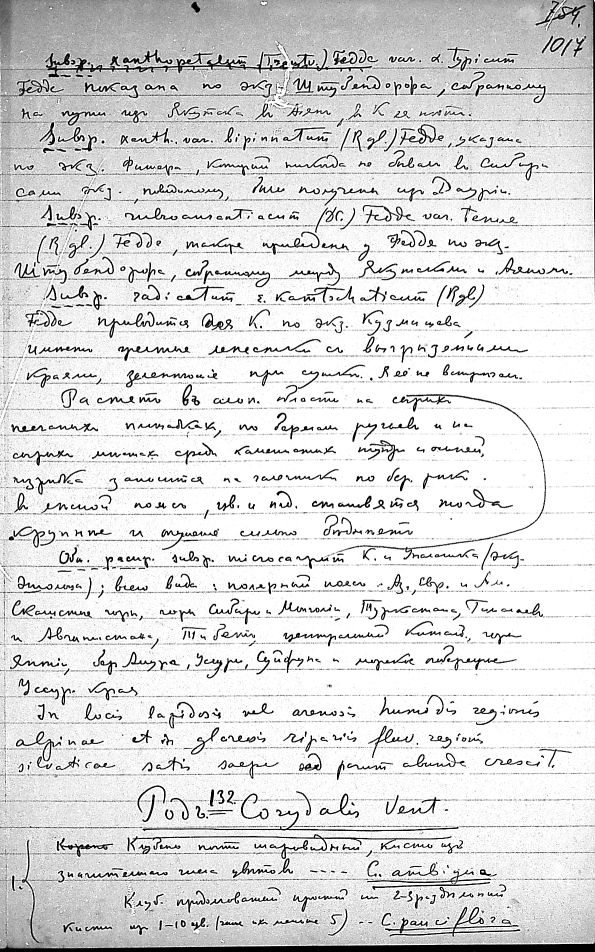 754.
1017
Subsp. xanthopetalum (Trautv.) Fedde var. α. typicum
Fedde показана по экз. Штубендорфа, собранному
на пути из Якутска в Аян, в К. ее нет.
Subsp. xanth. var. bipinnatum (Rgl.) Fedde, указана
по экз. Фишера, который никогда не бывал в Сибири
сами экз., повидимому, были получены из Даурии.
Subsp. rubroaurantiacum (DC.) Fedde var. tenue
(Rgl.) Fedde, также приведена у Fedde по экз.
Штубендорфа, собранному между Якутском и Аяном.
Subsp. radicatum γ. kamtschaticum (Rgl)
Fedde приводится для К. по экз. Кузмищева,
имеет желтые лепестки с выгрызенными
краями, зеленеющие при сушке. Я её не встречал.
Растет въ альп. области на сырых
песчаных площадках, по берегам ручьев и на
сырых местах среди каменистых
изредка заносится на галечники по бер. рек.
в лесной пояс, цв. и пл. становятся тогда
крупнее и опушение сильно
Общ. распр. subsp. microcarpum К. и Уналашка (экз.
Эшшольца); всего вида: полярный пояс Аз., Евр. и Ам.
Скалистые горы, горы Сибири и Монголии, Туркестана, Гималаев
и Афганистана, Тибета, центральный Китай, горы
Японии, бер. Амура, Уссури, Суйфуна и морское побережье
Уссур. края
In locis lapidosis vel arenosis humidis regionis
alpinae et in glareis ripariis fluv. regionis
silvaticae satis saepe sed parum abunda crescit.
Родъ 132. Corydalis Vent.
1. Клубень почти шаровидный, кисть из
значительного числа цветов ---- C. ambigua
Клуб. продолговатый простой или 2-3 раздельный
кисти из 1-10 цв. (чаще их меньше 5) -- C. pauciflora